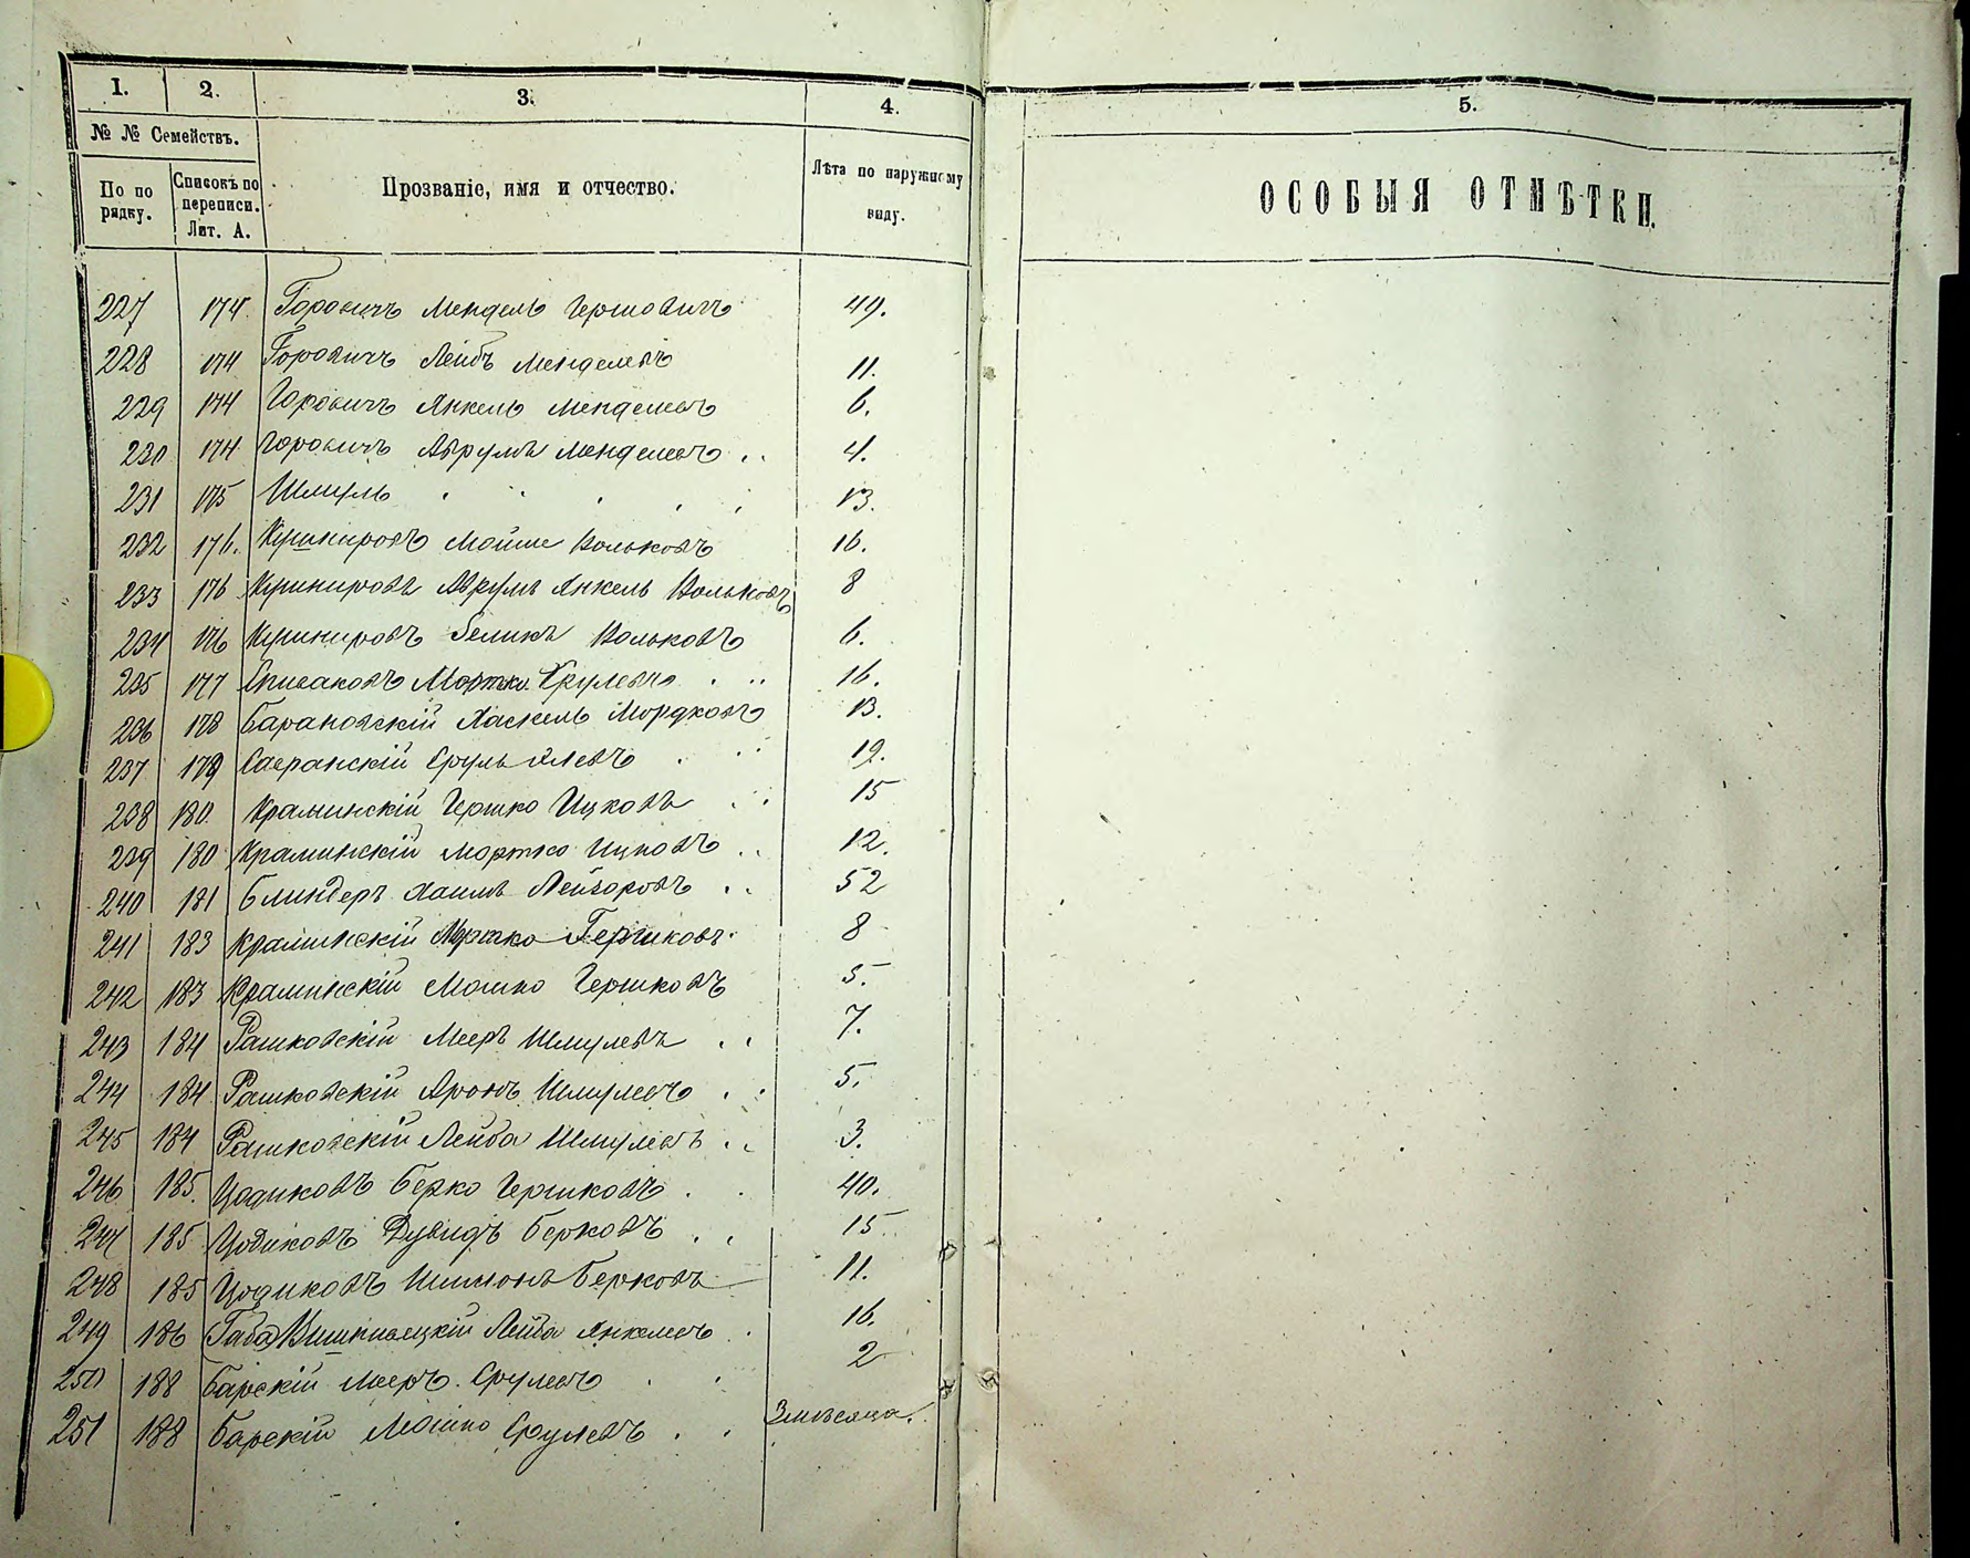 1. 2. 3. 4. 5.
№ № Семействъ.
По по рядку. Списокъ по переписи. Лит. А. Прозваніе, имя и отчество. Лѣта по наружному виду. ОСОБЫЯ ОТМѢТКИ.
227 174 Горовичъ Мендель Гершовичъ 49.
228 174 Горовичъ Лейбъ Менделевъ 11.
229 174 Горовичъ Янкель Менделевъ 6.
230 174 Горовичъ Аврумъ Менделевъ .. 4.
231 175 Шмуль 13.
232 176. Кушнировъ Мойше Вольковъ 16.
233 176 Кушнировъ Аврумъ Янкель Вольковъ 8
234 176 Кушнировъ Зеликъ Вольковъ 6.
235 177 Спиваковъ Мортко Срулевъ . .. 16.
236 178 Барановскій Хаскель Мордковъ 13.
237 179 Савранскій Сруль .. 19.
238 180. Краминскій Гершко Ицковъ .. 15
239 180 Краминскій Мортко Ицковъ .. 12.
240 181 Блиндеръ Хаимъ Лейзоровъ .. 52
241 183 Краминскій Мортко Гершковъ. 8
242 183 Краминскій Мошко Гершковъ 5.
243 184 Рашковскій Мееръ Шмулевъ .. 7.
244 184 Рашковскій Аронъ Шмулевъ .. 5.
245 184 Рашковскій Лейба Шмулевъ .. 3.
246 185. Цодиковъ Берко Гершковъ . . 40.
247 185 Цодиковъ Дувидъ Берковъ .. 15
248 185 Цодиковъ Шимонъ Берковъ 11.
249 186 Вишнивецкій Лейба Янкелевъ . 16.
250 188 Барскій Мееръ Срулевъ . . 2
251 188 Барскій Мошко Срулевъ . . 3 мѣсяца.